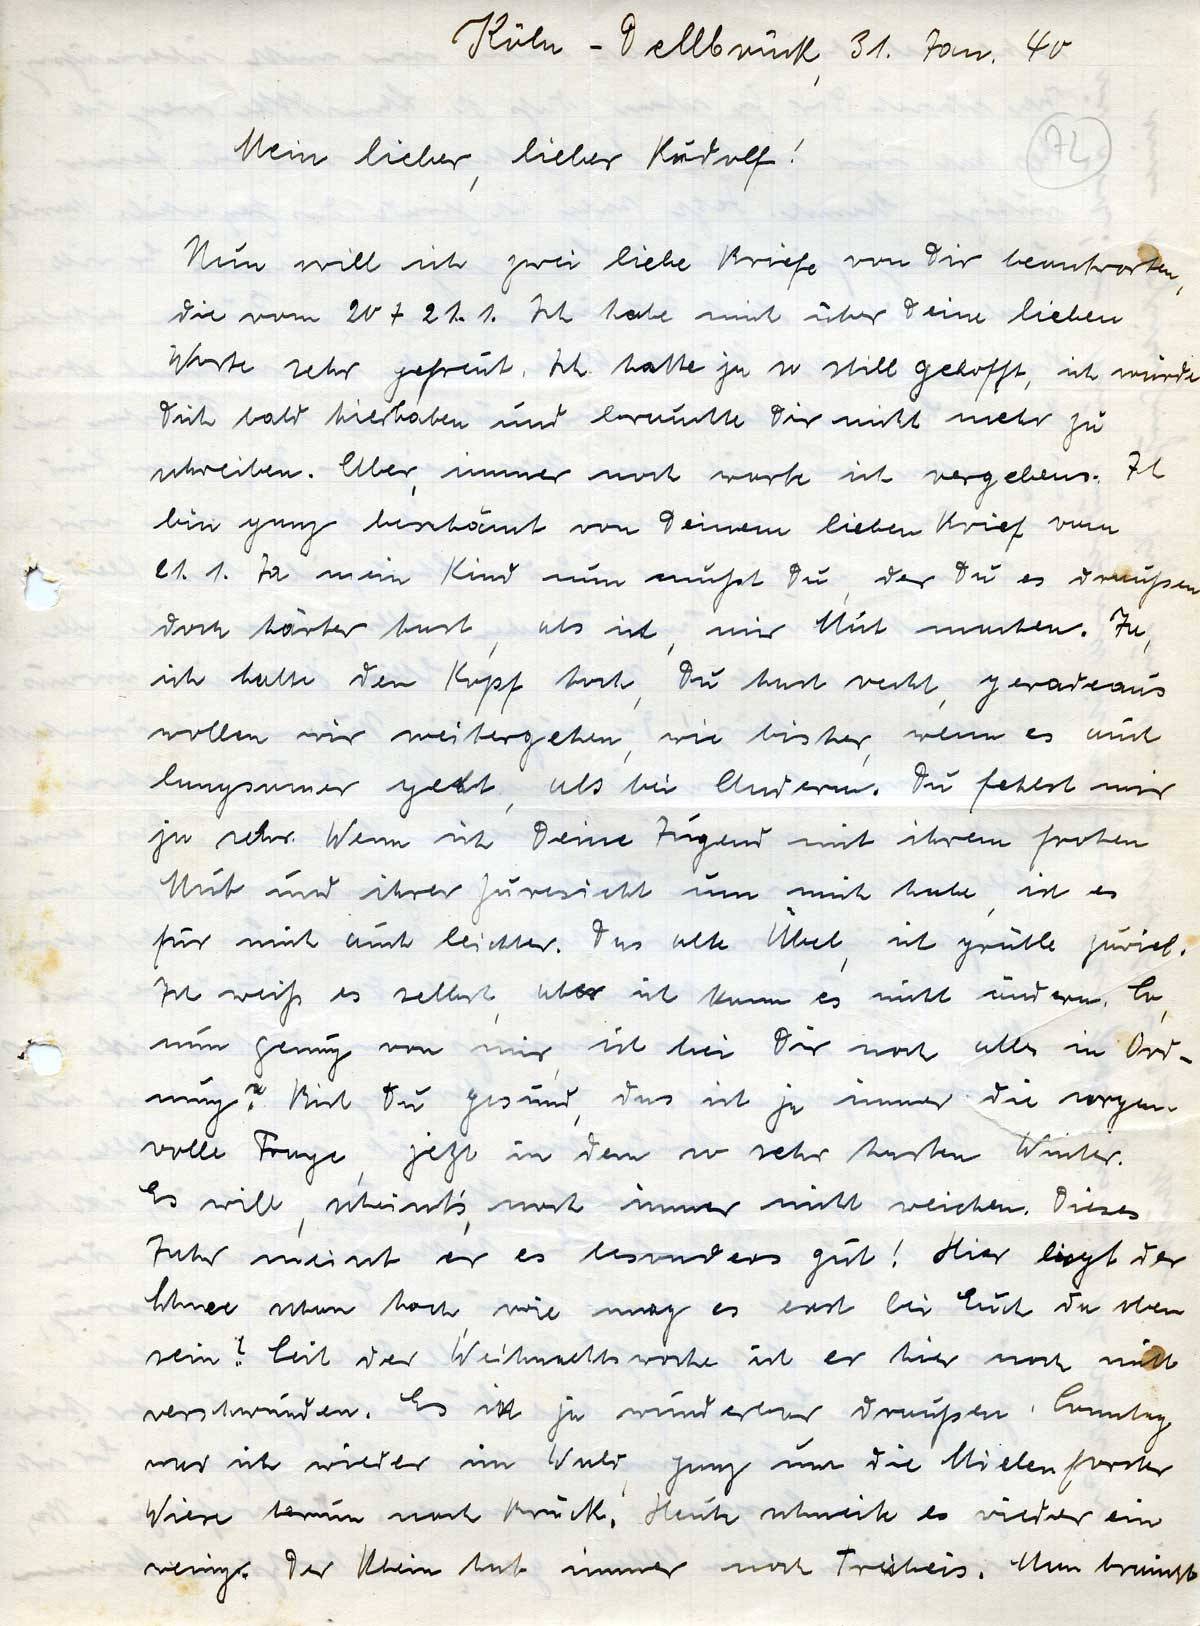 Köln-Dellbrück, 31. Jan. 40
74
Mein lieber, lieber Rudolf!
Nun will ich zwei liebe Briefe von Dir beantworten,
die vom 20 + 21.1. Ich habe mich über Deine lieben
Worte sehr gefreut. Ich hatte ja so still gehofft, ich würde
Dich bald hierhaben und brauchte Dir nicht mehr zu
schreiben. Aber, immer noch warte ich vergebens. Ich
bin ganz beschämt von Deinem lieben Brief vom
21.1. Ja mein Kind nun mußt Du, der Du es draußen
doch härter hast, als ich, mir Mut machen. Ja,
ich halte den Kopf hoch, Du hast recht, geradeaus
wollen wir weitergehen, wie bisher, wenn es auch
langsamer geht, als bei Andern. Du fehlst mir
ja sehr. Wenn ich Deine Jugend mit ihrem frohen
Mut und ihrer Zuversicht um mich habe, ist es
für mich auch leichter. Das alte Übel, ich grüble zuviel.
Ich weiß es selbst, aber ich kann es nicht ändern. So,
nun genug von mir, ist bei Dir noch alles in Ord-
nung? Bist Du gesund, das ist ja immer die sorgen-
volle Frage, jetzt in dem so sehr harten Winter.
Es will, scheint's, noch immer nicht weichen. Dieses
Jahr meint er es besonders gut! Hier liegt der
Schnee schon hoch, wie mag es erst bei Euch da oben
sein? Seit der Weihnachtswoche ist er hier noch nicht
verschwunden. Es ist ja wunderbar draußen. Sonntag
war ich wieder im Wald, ganz um die Mielenforster
Wiese herum nach Brück. Heute schneite es wieder ein
wenig. Der Rhein hat immer noch Treibeis. Man braucht